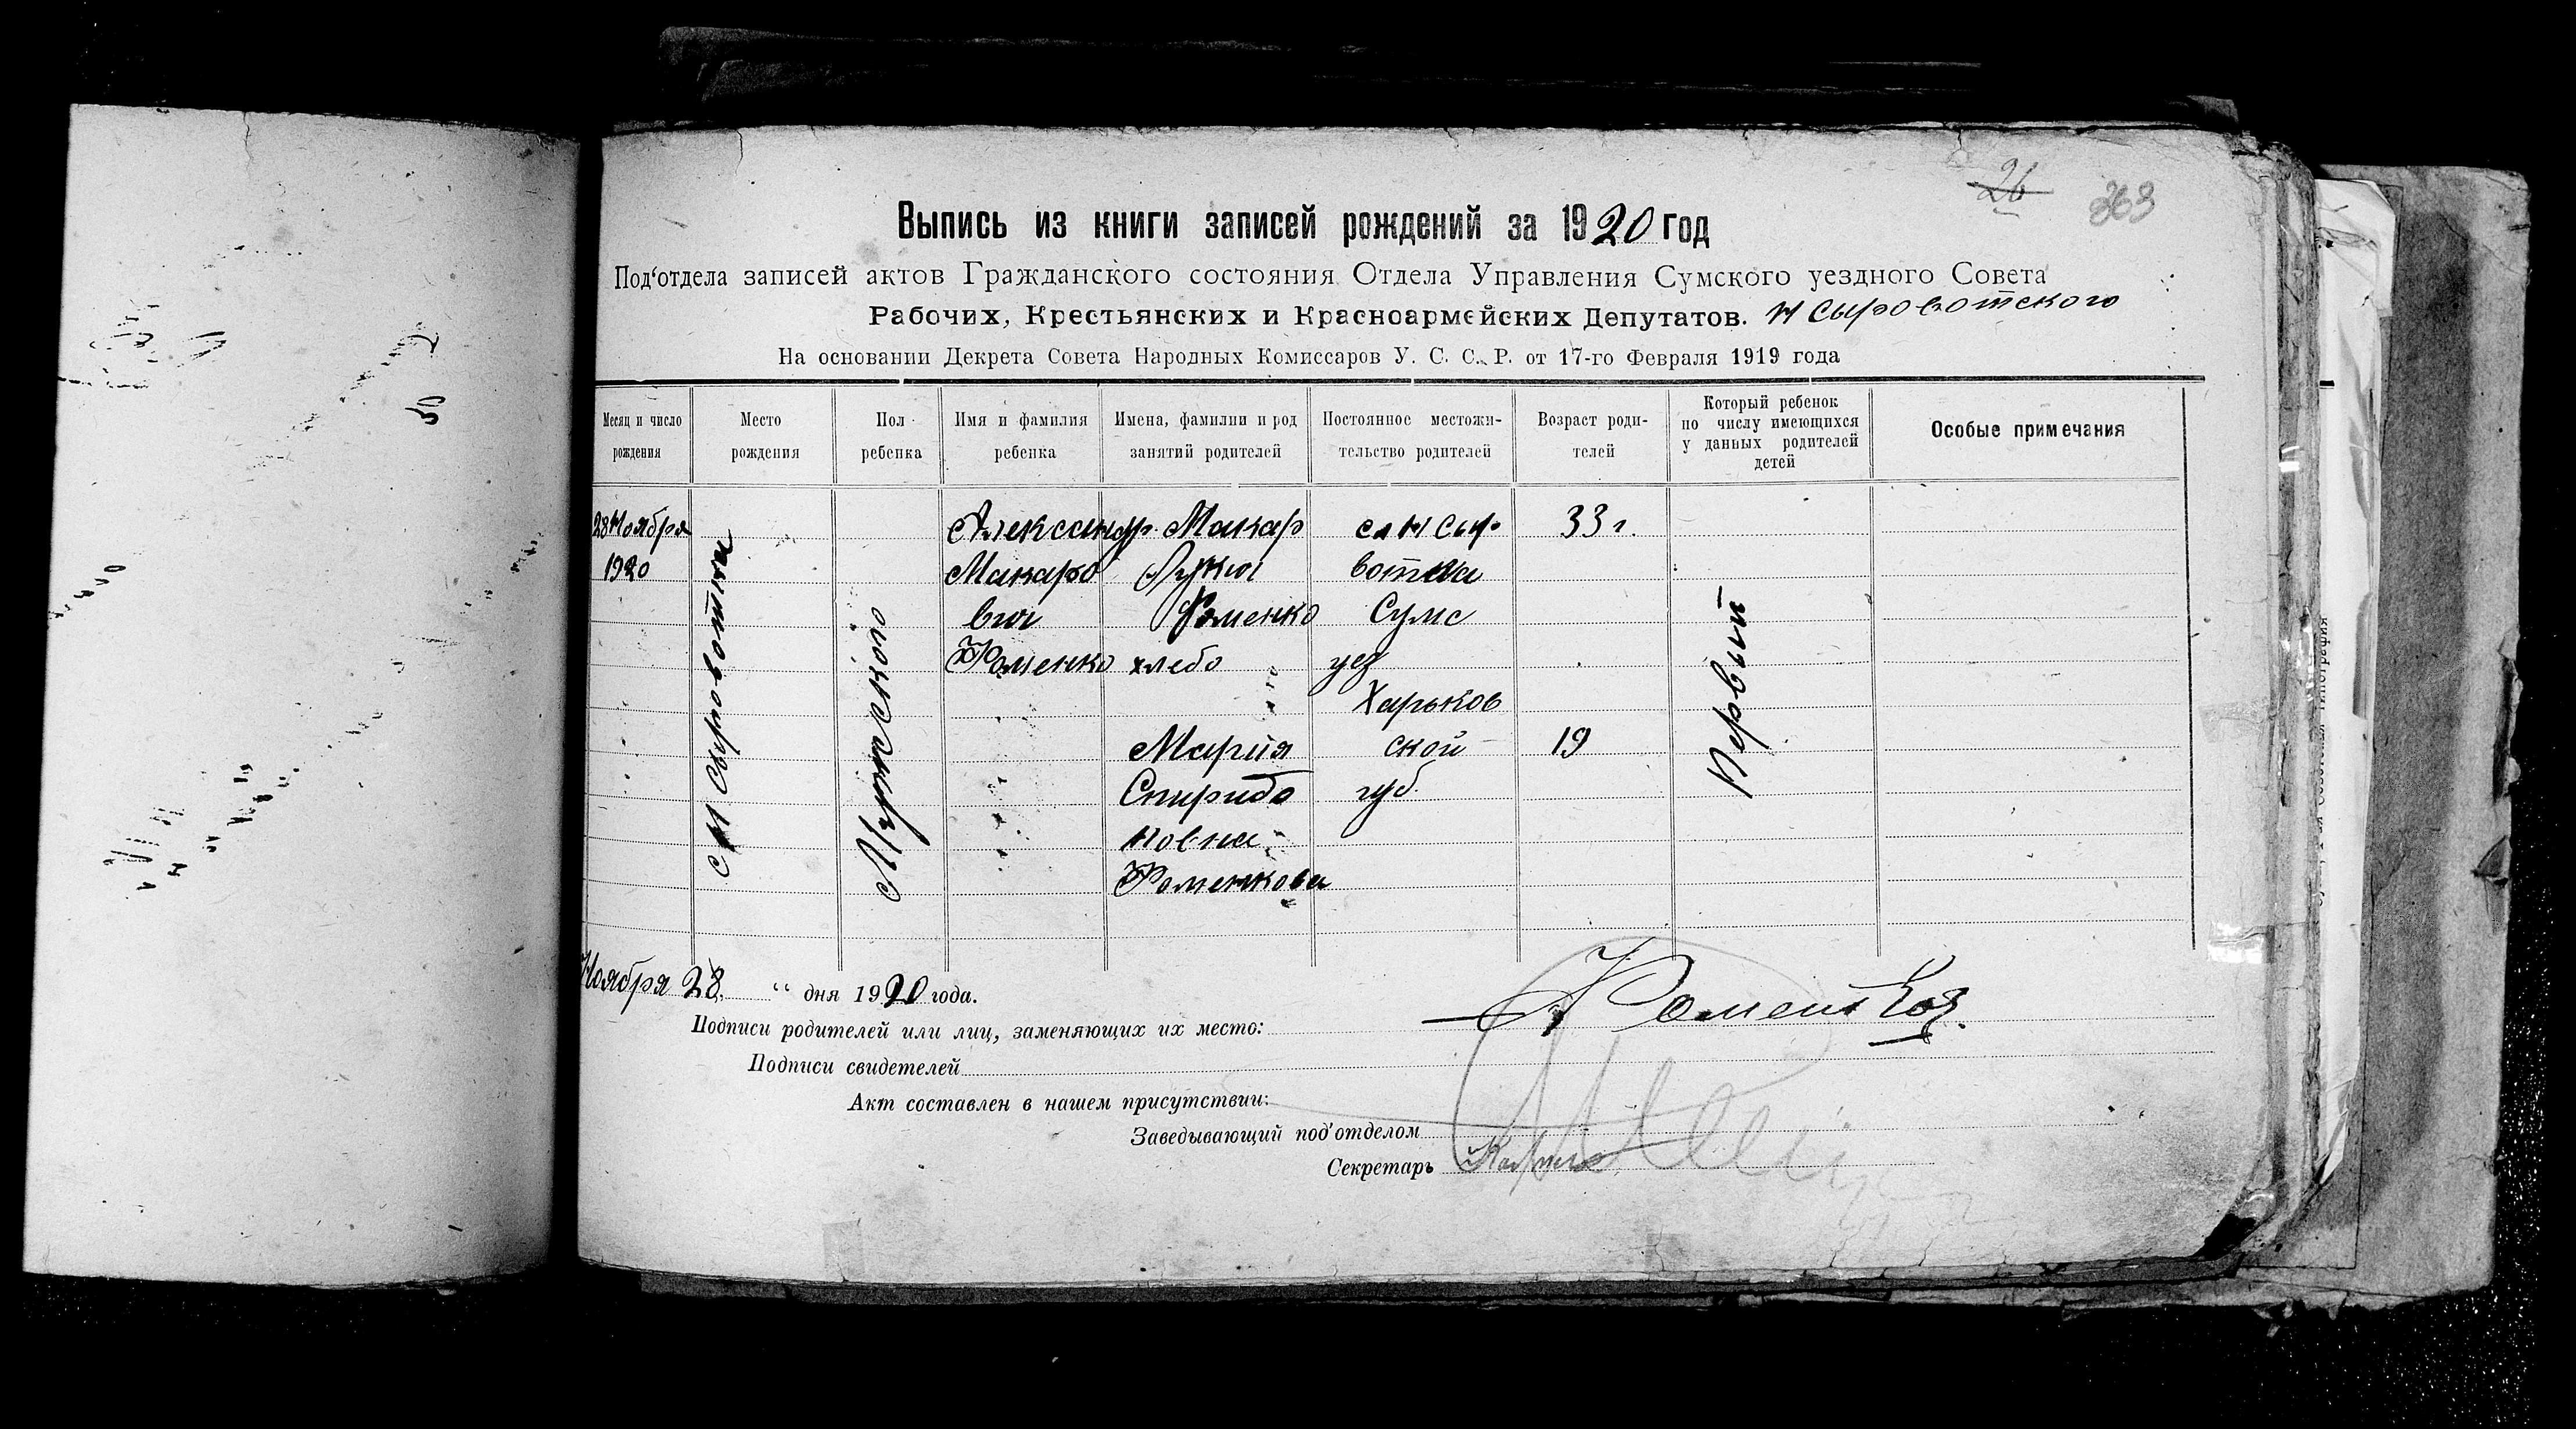 26 363
Выпись из книги записей рождений за 1920 год
Под'отдела записей актов Гражданского состояния Отдела Управления Сумского уездного Совета
Рабочих, Крестьянских и Красноармейских Депутатов. Н Сыровотского
На основании Декрета Совета Народных Комиссаров У. С. С. Р. от 17-го Февраля 1919 года
Месяц и число
рождения
Место
рождения
Пол
ребенка
Имя и фамилия
ребенка
Имена, фамилии и род
занятий родителей
Постоянное местожи-
тельство родителей
Возраст роди-
телей
Который ребенок
по числу имеющихся
у данных родителей
детей
Особые примечания
28 Ноября
1920
с Н Сыровотка
Мужского
Александр
Макаро
вич
Фоменко
Макар
Лукич
Фоменко
хлебо
Мария
Спиридо
новна
Фоменкова
сл Н Сыр
вотка
Сумс
уез
Харьков
ской
губ.
33 г.
19
Первый
Ноября 28 " дня 1920 года.
Подписи родителей или лиц, заменяющих их место:
Подписи свидетелей
Акт составлен в нашем присутствии:
Заведывающий под'отделом
Секретарь